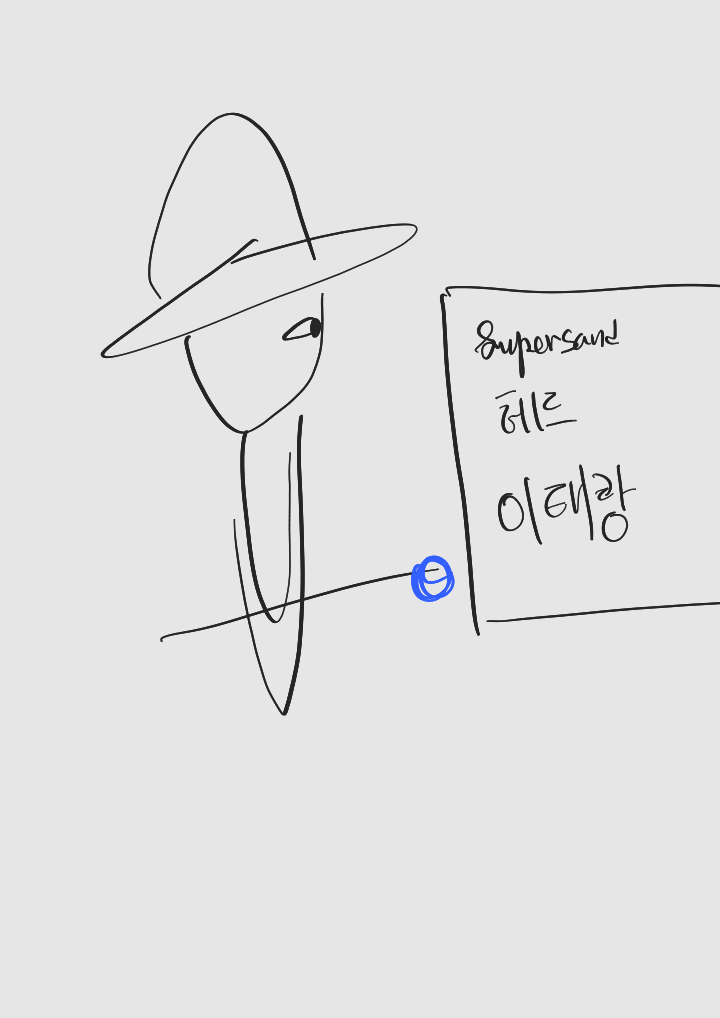 Supersand
헤드
이태랑